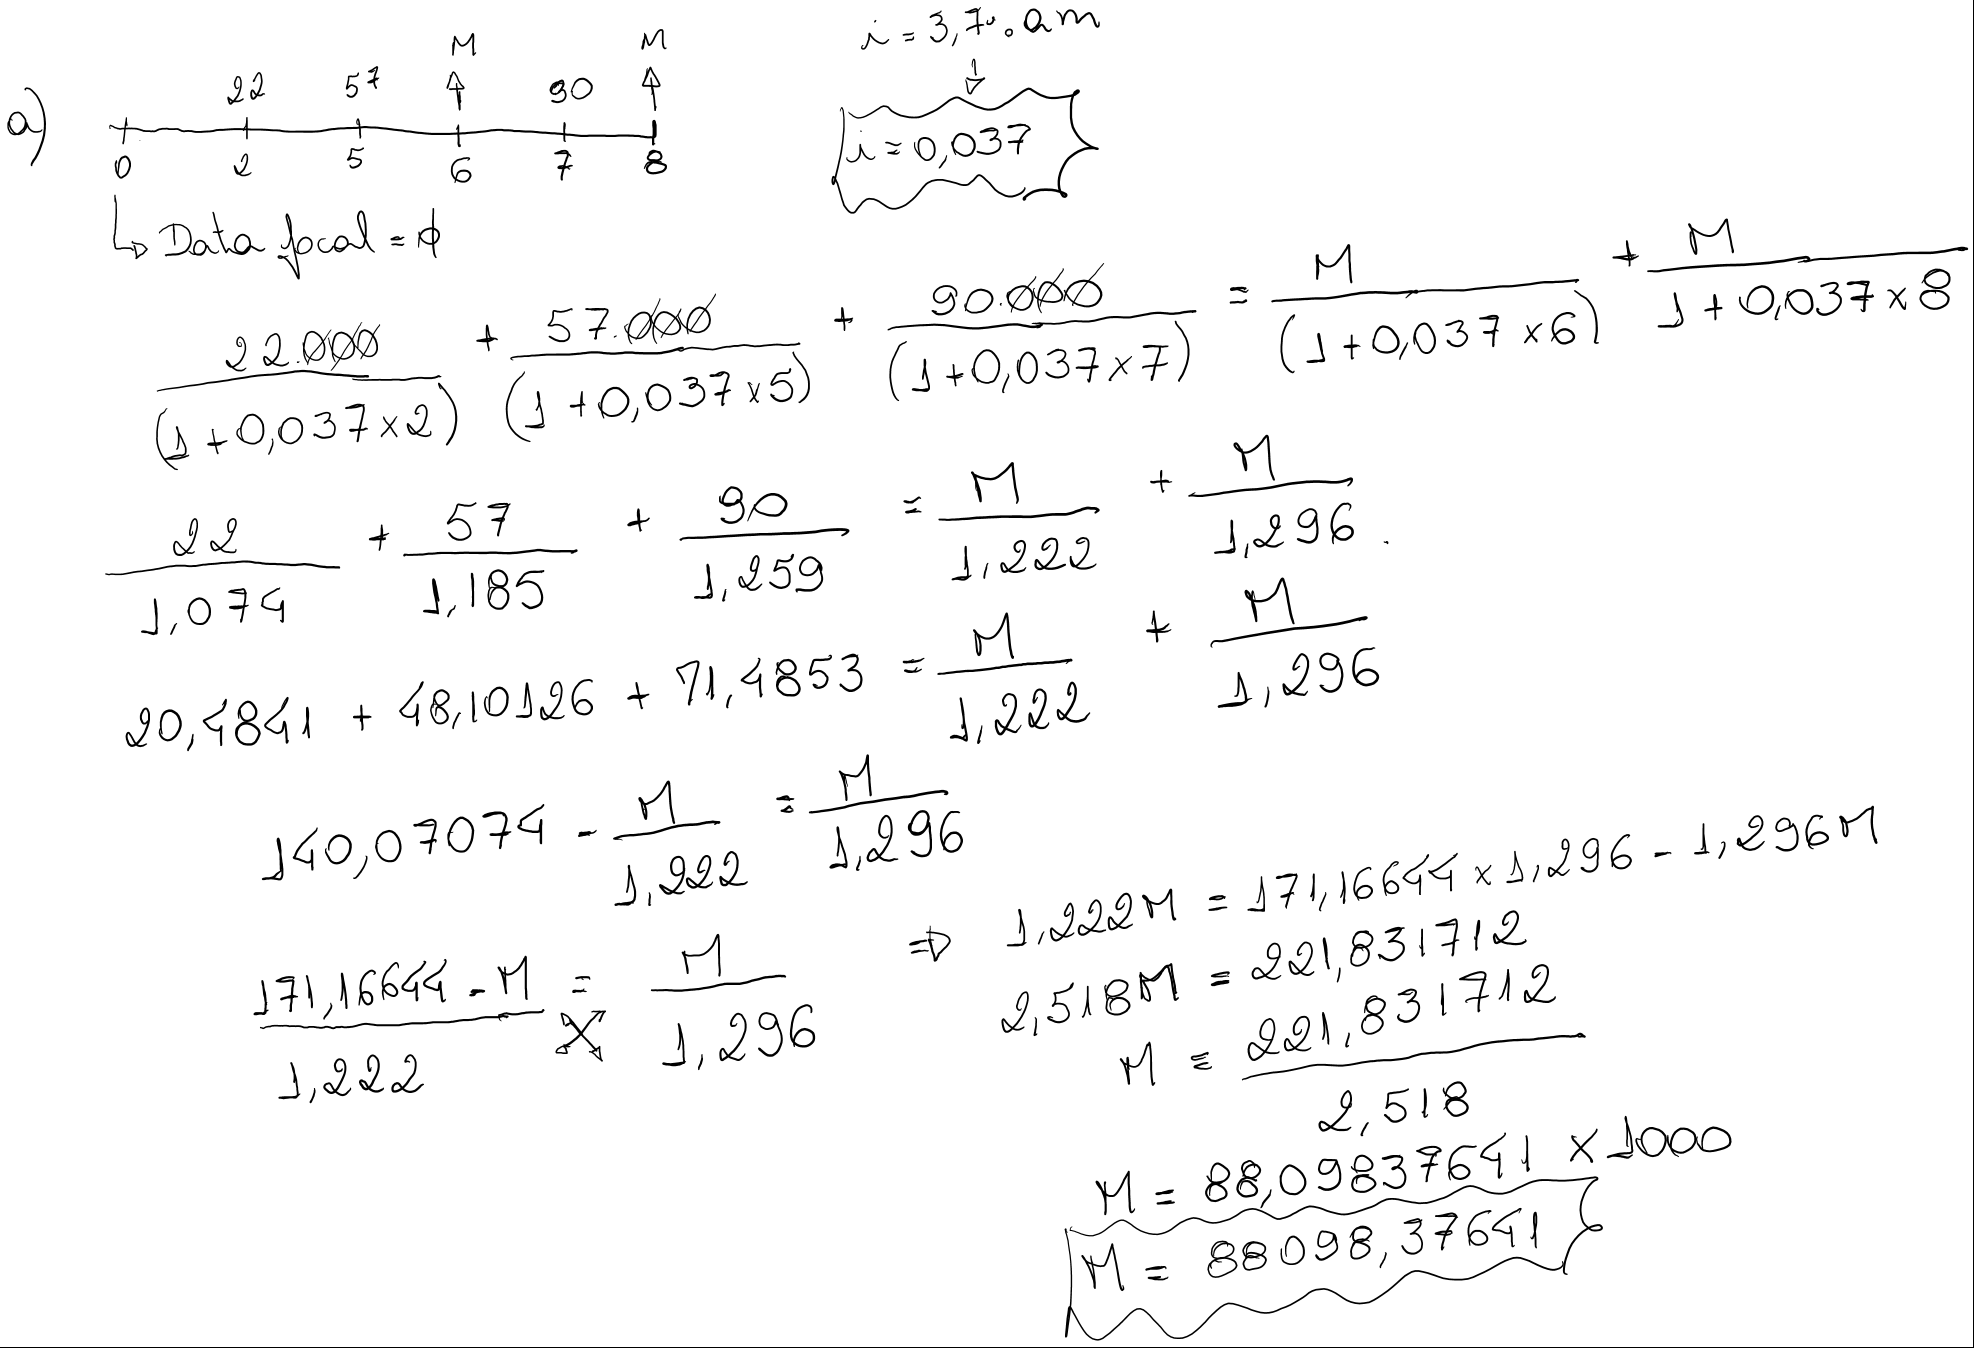 a)
M M
22 57 90
0 2 5 6 7 8
i = 3,7%. am
i = 0,037
↳ Data focal = ϕ
22.000/(1+0,037x2) + 57.000/(1+0,037x5) + 90.000/(1+0,037x7) = M/(1+0,037x6) + M/1+0,037x8
22/1,074 + 57/1,185 + 90/1,259 = M/1,222 + M/1,296.
20,4841 + 48,10126 + 71,4853 = M/1,222 + M/1,296
140,07074 - M/1,222 = M/1,296
171,16644 - M/1,222 = M/1,296
⇒ 1,222M = 171,16644 x 1,296 - 1,296M
2,518M = 221,831712
M = 221,831712/2,518
M = 88,09837641 x 1000
M = 88098,37641